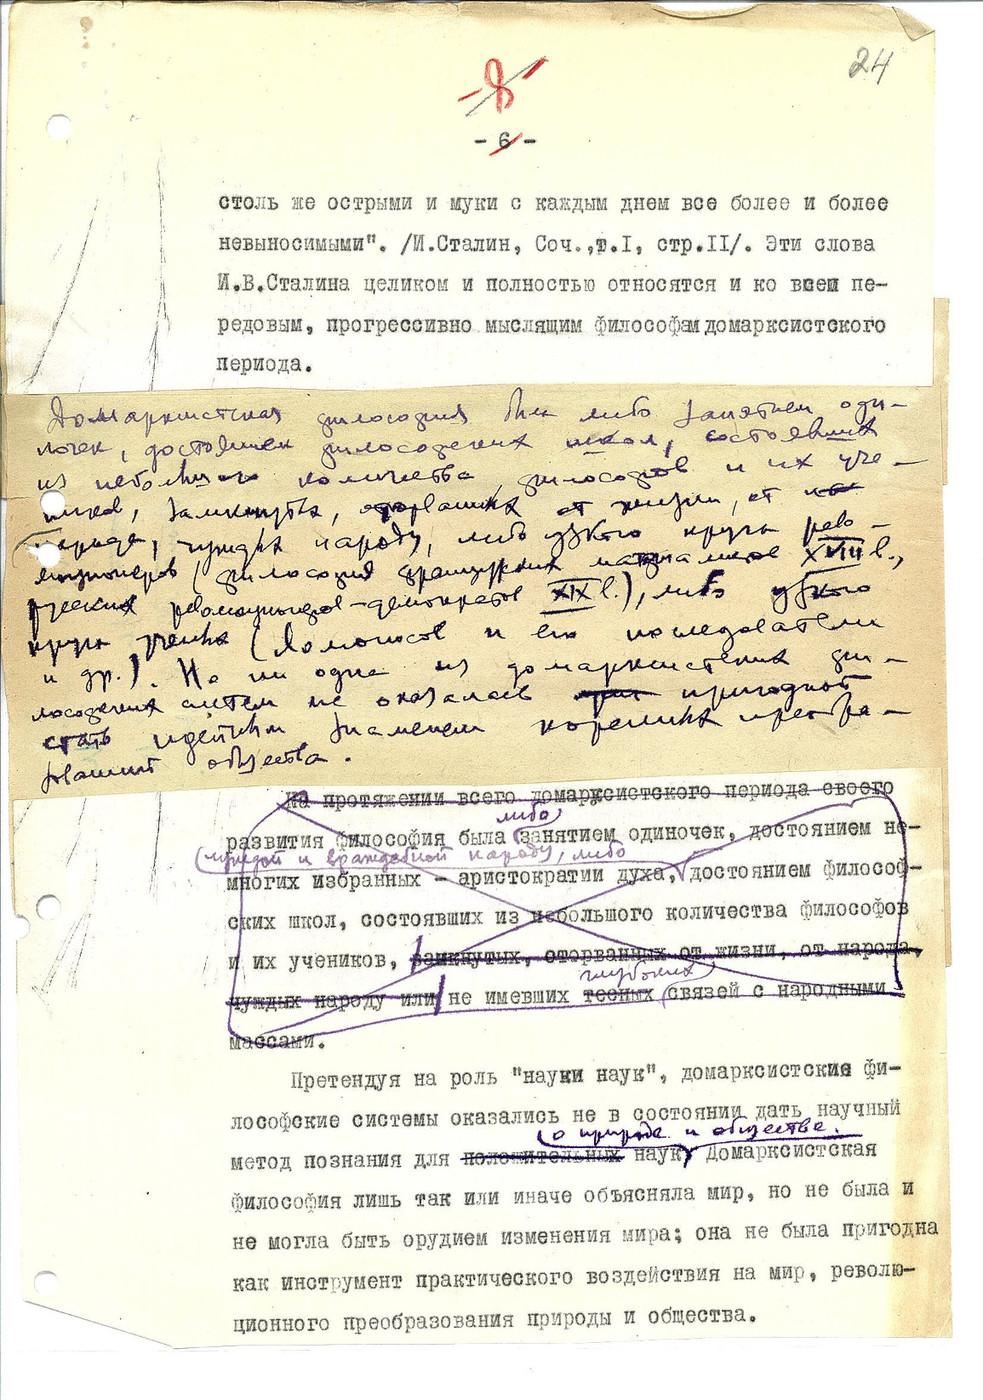 24
- 8 -
- 6 -
столь же острыми и муки с каждым днем все более и более
невыносимыми". /И.Сталин, Соч.,т.I, стр.II/. Эти слова
И.В.Сталина целиком и полностью относятся и ко всем пе-
редовым, прогрессивно мыслящим философам домарксистского
периода.
Домарксистская философия была либо занятием оди-
ночек, достоянием философских школ, состоявших
из небольшого количества философов и их уче-
ников, замкнутых, оторванных от жизни, от
народа, чуждых народу, либо узкого круга рево-
люционеров (философия французских материалистов XVIII в.,
русских революционеров-демократов XIX в.), либо узкого
круга ученых (Ломоносов и его последователи
и др.). Но ни одна из домарксистских фи-
лософских систем не оказалась пригодной
стать идейным знаменем коренных преобра-
зований общества.
На протяжении всего домарксистского периода своего
либо
развития философия была занятием одиночек, достоянием не-
(чуждой и враждебной народу, либо
многих избранных - аристократии духа, достоянием философ-
ских школ, состоявших из небольшого количества философов
и их учеников, замкнутых, оторванных от жизни, от народа,
глубоких
чуждых народу или не имевших тесных связей с народными
массами.
Претендуя на роль "науки наук", домарксистские фи-
лософские системы оказались не в состоянии дать научный
о природе и обществе.
метод познания для положительных наук. Домарксистская
философия лишь так или иначе объясняла мир, но не была и
не могла быть орудием изменения мира; она не была пригодна
как инструмент практического воздействия на мир, револю-
ционного преобразования природы и общества.